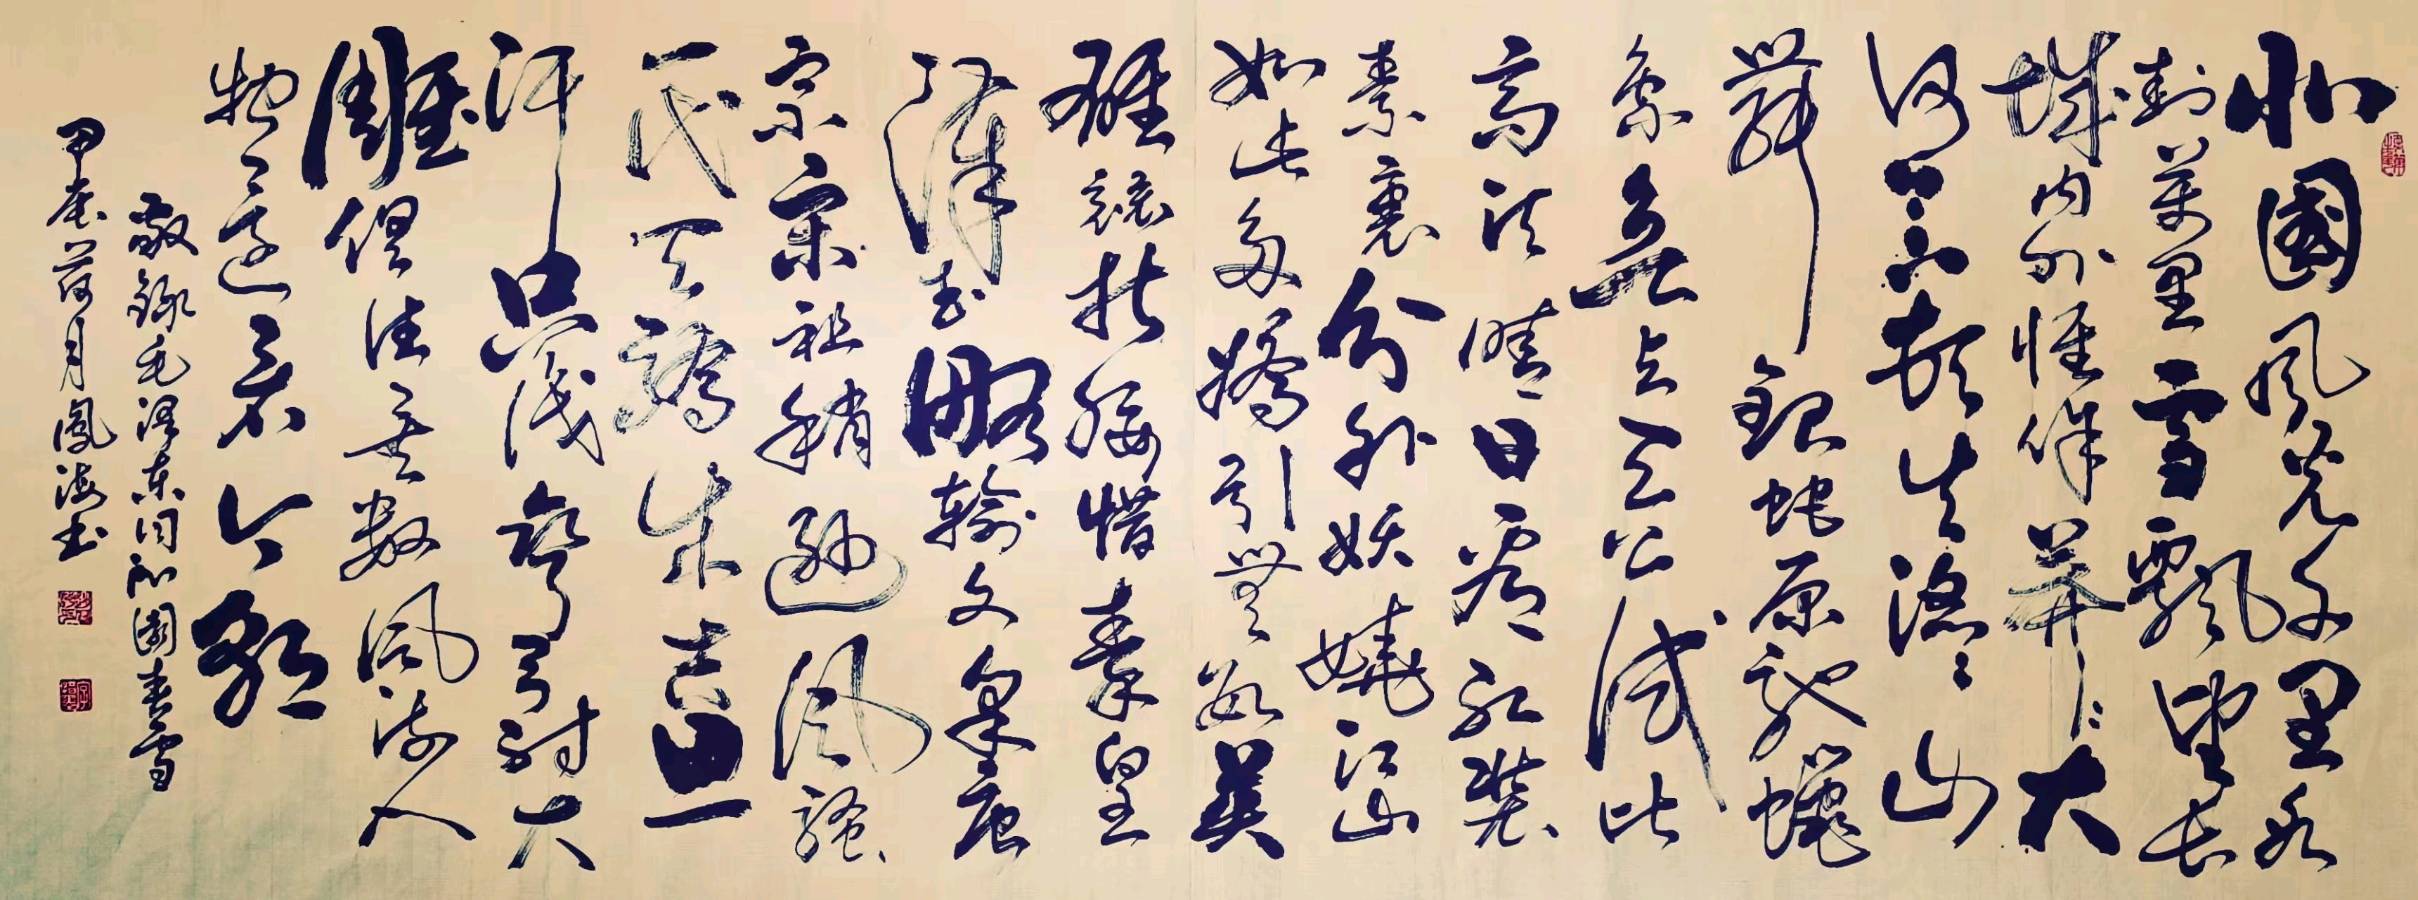 北國風光千里冰
封萬里雪飄望長
城內外惟餘莽〻大
河上下頓失滔〻山
舞銀蛇原馳蠟
象欲與天公試比
高須晴日看紅裝
素裹分外妖嬈江山
如此多嬌引無數英
雄競折腰惜秦皇
漢武略輸文采唐
宗宋祖稍遜風騷
一代天驕成吉思
汗只識彎弓射大
雕俱往矣數風流人
物還看今朝
敬錄毛澤東詞沁園春雪
甲辰荷月鳳海書